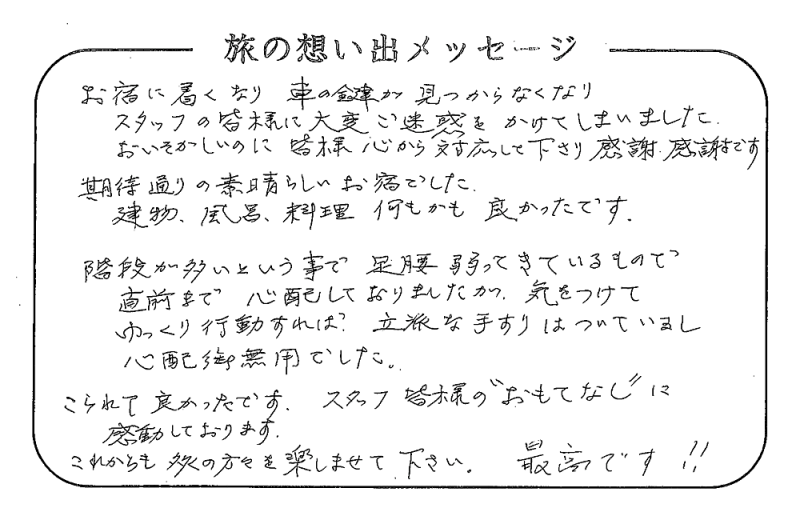 旅の想い出メッセージ
お宿に着くなり 車の鍵が 見つからなくなり
スタッフの皆様に大変ご迷惑を かけてしまいました.
おいそがしいのに 皆様 心から対応して下さり 感謝.感謝です
期待通りの素晴らしいお宿でした.
建物、風呂、料理 何もかも 良かったです.
階段が多いという事で 足腰 弱ってきているもので
直前まで 心配しておりましたが. 気をつけて
ゆっくり行動すれば? 立派な手すりはついていまし
心配御無用でした。
こられて良かったです. スタッフ 皆様の"おもてなし"に
感動しております.
これからも 多くの方々を楽しませて下さい。 最高です!!